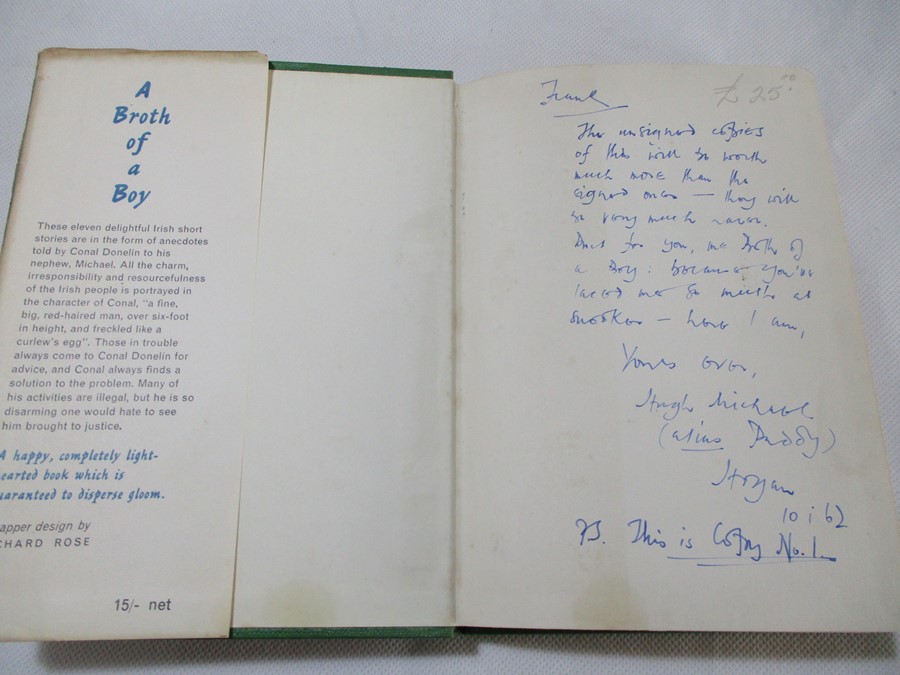 A
Broth
of
a
Boy
These eleven delightful Irish short
stories are in the form of anecdotes
told by Conal Donelin to his
nephew, Michael. All the charm,
irresponsibility and resourcefulness
of the Irish people is portrayed in
the character of Conal, "a fine,
big, red-haired man, over six-foot
in height, and freckled like a
curlew's egg". Those in trouble
always come to Conal Donelin for
advice, and Conal always finds a
solution to the problem. Many of
his activities are illegal, but he is so
disarming one would hate to see
him brought to justice.
A happy, completely light-
earted book which is
uaranteed to disperse gloom.
apper design by
CHARD ROSE
15/- net
£25.00
Frank
The unsigned copies
of this will be worth
much more than the
signed ones — they will
be very much rarer.
But for you, me Broth of
a Boy: because you've
me so much at
snooker — here I am,
Yours ever,
Hugh Michael
(alias Paddy)
Horgan
10 i 62
PS. This is Copy No. 1.